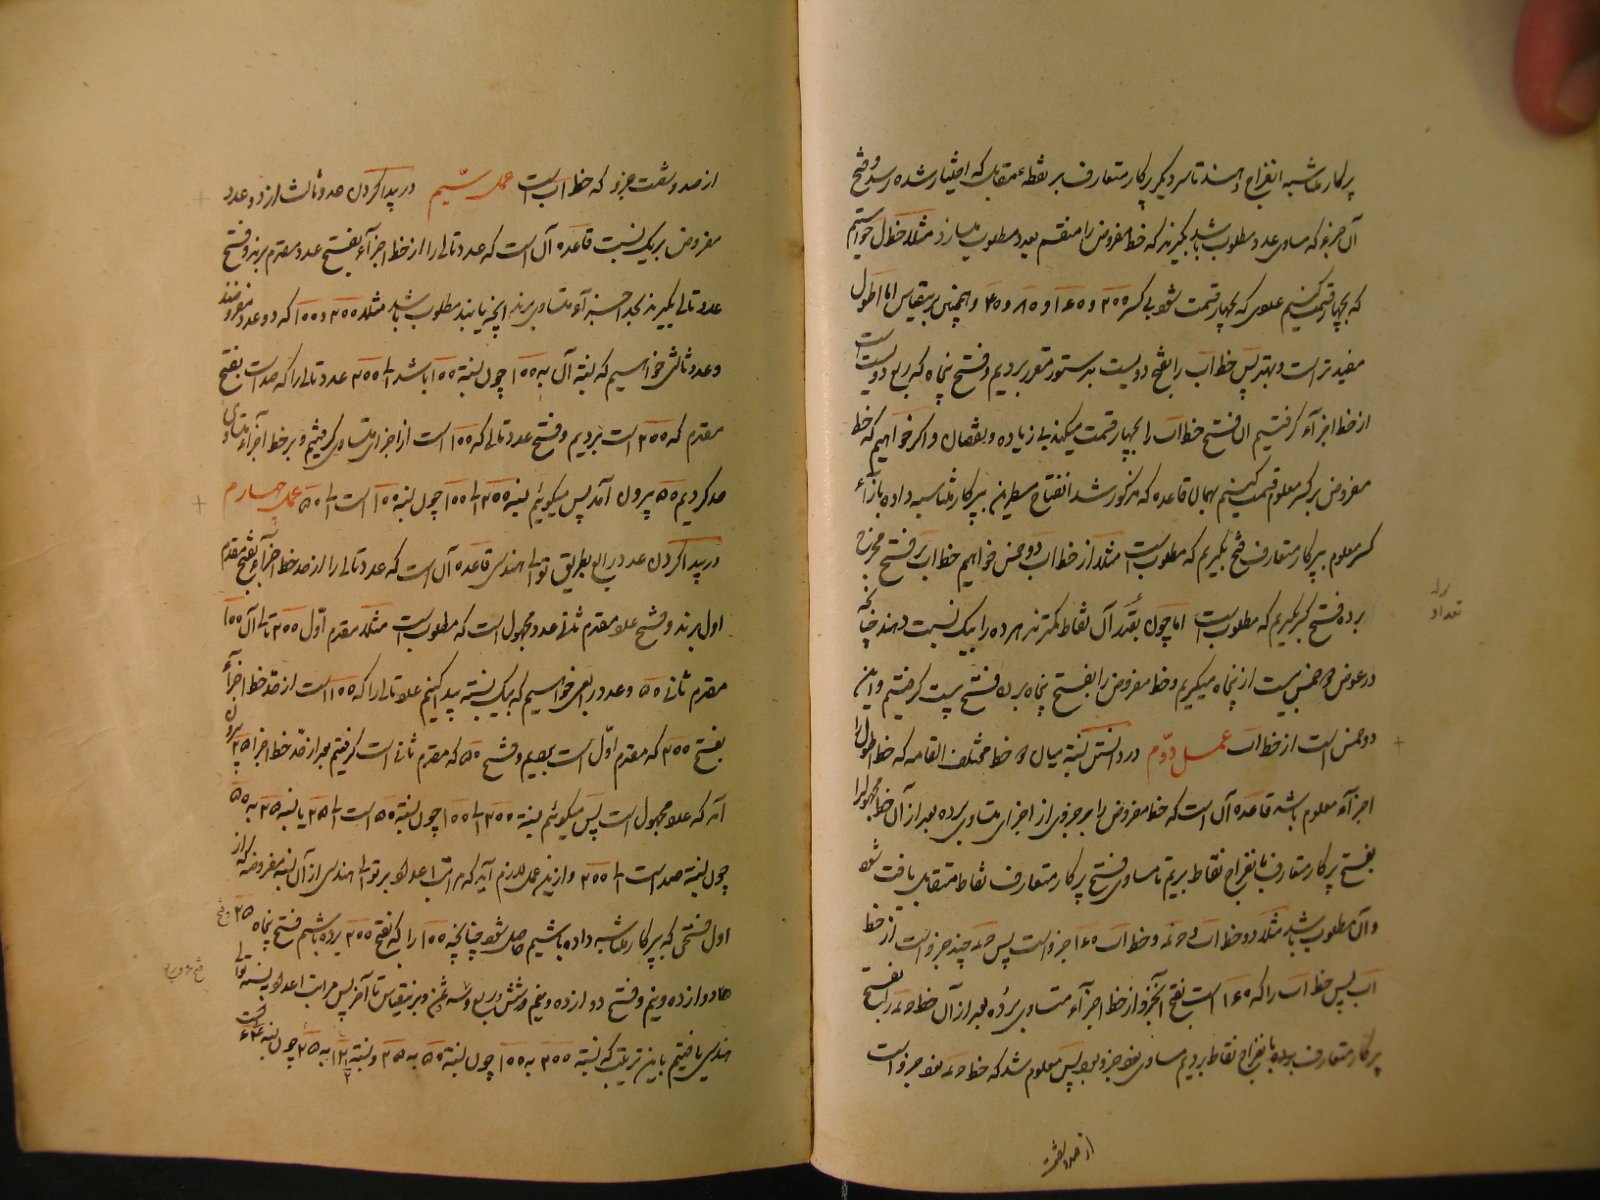 پرکار مناسبه انفراج دهند تا سر دیگر پرکار متعارف بر نقطهٔ مقابل که اختیار شده رسد و فتح
آن جزء که مساوی عدد مطلوب باشد بگیرند که خط مفروض را منقسم بعدد مطلوب میسازد مثلا خط ل خواستیم
که بچهار قسمت کنیم عددی که بچهار قسمت شود بی کسر ۲۰۰ و ۱۶۰ و ۸۰ و ۴۰ و همچنین برینقیاس اما اطول
مفیدتر است و بهتر پس خط اب را بفتح دویست بدستور مقرر بردیم و فتح پنجاه که ربع دویست است
از خط اجزآء گرفتیم آن فتح خط اب را بچهار قسمت میکند بی زیاده و نقصان و اگر خواهیم که خط
مفروض بر کسر معلوم قسمت کنیم بهمان قاعده که مذکور شد انفتاح مسطرین پرکار مناسبه داده بازآء
کسر معلوم بپرکار متعارف فتح بگیریم که مطلوبست مثلا از خط اب دو خمس خواهیم خط اب بر فتح مخرج
برده فتح کسر بگیریم که مطلوبست اما چون بقدر آن نقاط کمترند هر ده را بیک نسبت دهند چنانچه
در عوض دو خمس بیست از پنجاه میگیریم و خط مفروض را بفتح پنجاه برده فتح بیست گرفتیم و این
دو خمس است از خط اب عمل دوّم در دانستن نسبت میان دو خط مختلف القامه که خط اطول را
اجزآء معلوم باشد قاعده آن است که خط مفروض را بر جزوی از اجزای متساوی برده بعد از آن خط مجهول را
بفتح پرکار متعارف با نفراج نقاط بریم تا مساوی فتح پرکار متعارف نقاط متقابل یافت شود
و آن مطلوب باشد مثلا دو خط اب و حـ و خط اب ۱۶۰ جزو است پس حـ چند جزو است از خط
اب پس خط اب را که ۱۶۰ است بفتح آنجزو از خط اجزآء متساوی برده بعد از آن خط حـ را بفتح
پرکار متعارف برده با نفراج نقاط بردیم مساوی جزو بود پس معلوم شد که خط حـ جزو است
تعداد
از صد و شصت
از صد و شصت جزو که خط اب است عمل سیّم در پیدا کردن عدد ثالث از دو عدد
مفروض بر یک نسبت قاعده آن است که عدد تالی را از خط اجزآء بفتح عدد مقدم برند و فتح
عدد تالی بگیرند بعد اجزآء متساوی برند آنچه یابند مطلوب باشد مثلا ۲۰۰ و ۱۰۰ که دو عدد مفروضند
و عدد ثالثی خواسیم که نسبة آن به ۱۰۰ چون نسبة ۱۰۰ باشد الی ۲۰۰ عدد تالی را که صد است بفتح
مقدم که ۲۰۰ است بردیم و فتح عدد تالی که ۱۰۰ است از اجزای متساوی گرفتیم و بر خط اجزآء متساوی
صد کردیم ۵۰ بیرون آمد پس میکوئیم نسبة ۲۰۰ الی ۱۰۰ چون نسبة ۱۰۰ است الی ۵۰ عمل چهارم
در پیدا کردن عدد رابع بطریق توالی هندسی قاعده آن است که عدد تالی را از صد خط اجزآء بفتح مقدم
اول برند و فتح عدد مقدم ثانی عدد مجهول است که مطلوبست مثلا مقدم اوّل ۲۰۰ تالی آن ۱۰۰
مقدم ثانی ۵۰ و عدد رابعی خواسیم که بیک نسبة پیدا کنیم عدد تالی را که ۱۰۰ است از حدّ خط اجزآء
بفتح ۲۰۰ که مقدم اوّل است بردیم و فتح ۵۰ که مقدم ثانی است گرفتیم بعد از حدّ خط اجزا ۲۵ بیرون
آمد که عدد مجهول است پس میکوئیم نسبة ۲۰۰ الی ۱۰۰ چون نسبة ۵۰ است الی ۲۵ یا نسبة ۲۵ به ۵۰
چون نسبة صد است الی ۲۰۰ و ازین عمل لازم آید که مراتب اعداد بر توالی هندسی از آن نسبة مفروضه که از
اول فتحی که بپرکار مناسبه داده باشیم حاصل شود چنانچه ۱۰۰ را که بفتح ۲۰۰ برده باشیم فتح پنجاه ۲۵
دوازده و نیم و فتح دوازده و نیم و شش و ربع و سه ثمن و برینقیاس تا آخر پس مراتب اعداد بنسبه توالی
هندسی یافتیم باین ترتیب که نسبة ۲۰۰ به ۱۰۰ چون نسبة ۵۰ به ۲۵ و نسبة ۱۲ ۱/۲ به ۲۵ چون نسبة
و فتح